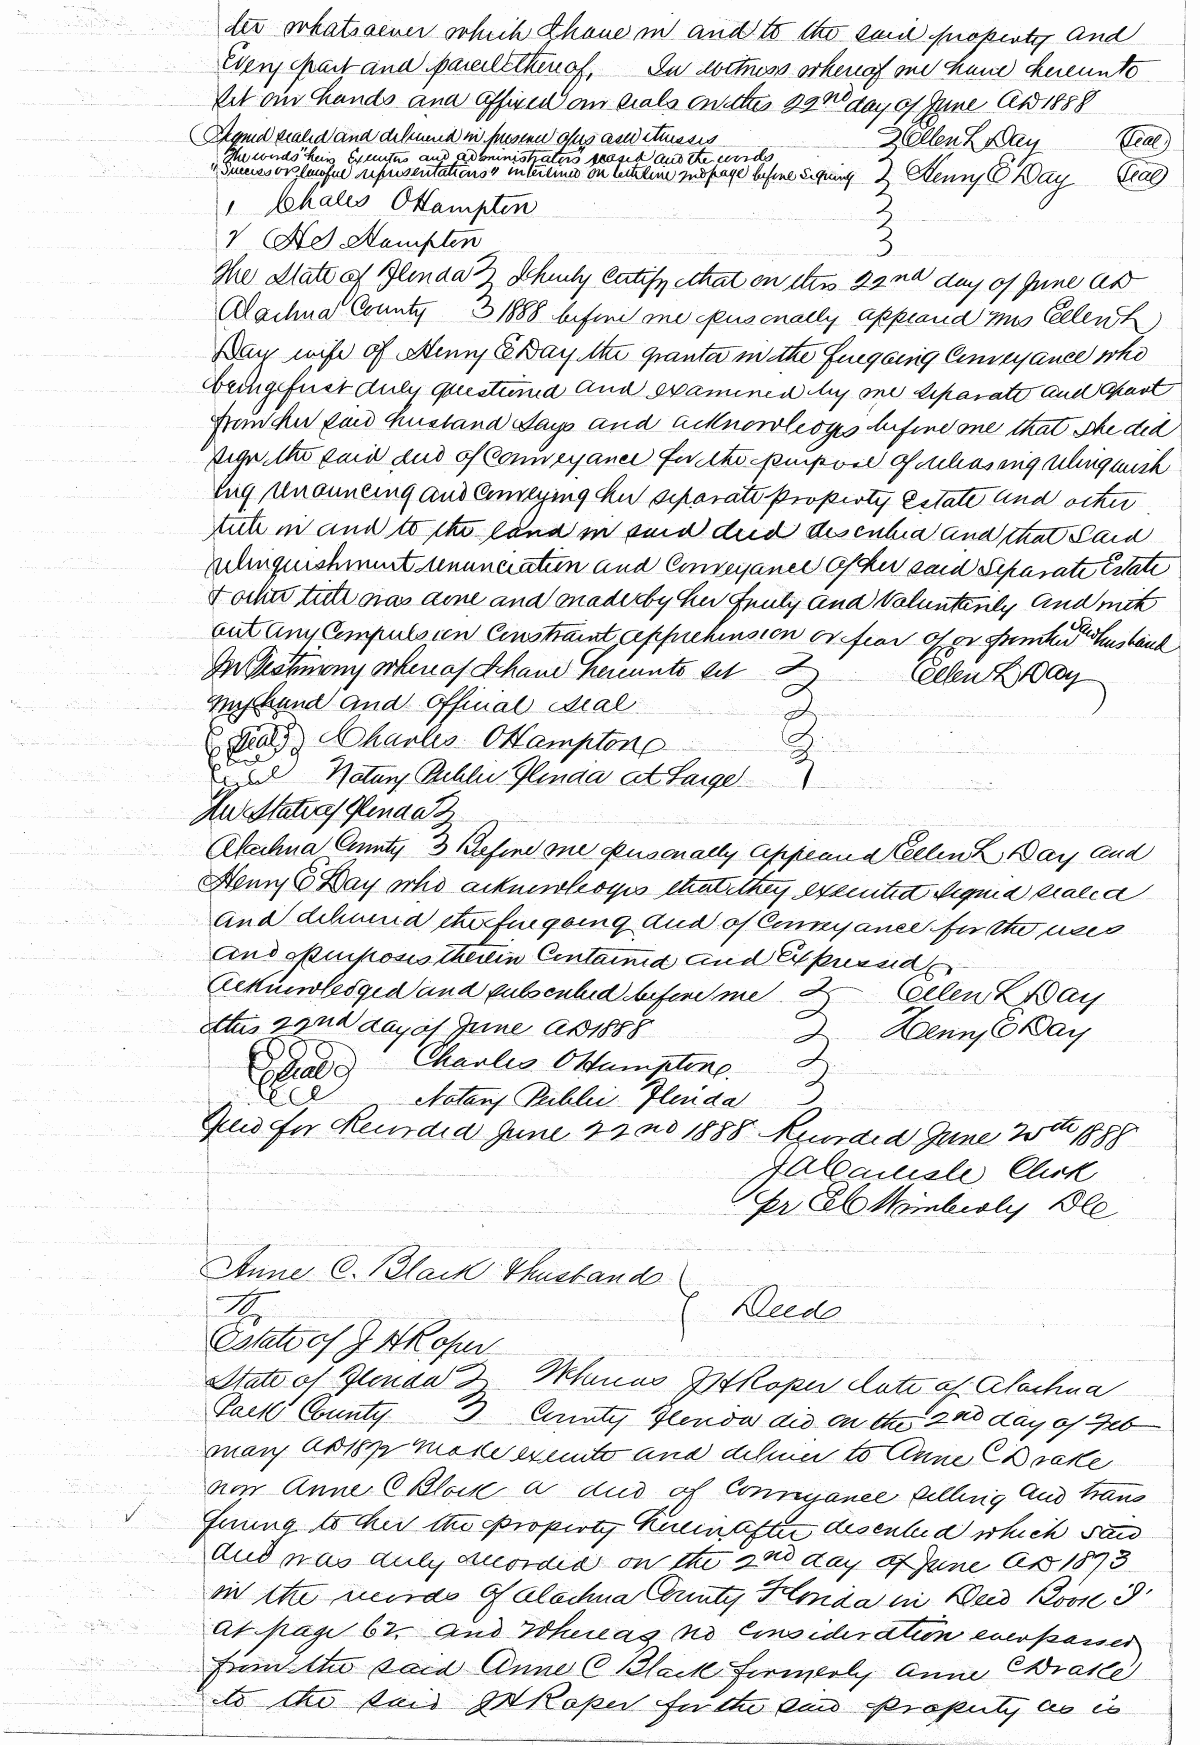 ter whatsoever which I have in and to the said property and
Every part and parcel thereof, In witness whereof we have hereunto
set our hands and affixed our seals on this 22nd day of June AD 1888
Signed sealed and delivered in presence of us as witnesses } Ellen L Day (Seal)
"The words "heirs Executors and administrators" erased and the words
"Successor lawful representations" interlined on line 2nd page before signing } Henry E Day (Seal)
1 Chales O Hampton
2 H S Hampton
The State of Florida } I hereby Certify that on this 22nd day of June AD
Alachua County } 1888 before me personally appeared Mrs Ellen L
Day wife of Henry E Day the grantor in the foregoing Conveyance who
being first duly questioned and examined by me separate and apart
from her said husband Says and acknowledges before me that she did
sign the said deed of Conveyance for the purpose of releasing relinquish
ing renouncing and Conveying her separate property Estate and other
title in and to the land in said deed described and that Said
relinquishment renunciation and Conveyance of her said Separate Estate
& other title was done and made by her freely and Voluntarily and with
out any Compulsion Constraint apprehension or fear of or from her said husband
In Testimony whereof I have hereunto set } Ellen L Day
my hand and official seal
(Seal) Charles O Hampton
Notary Public Florida at Large
The State of Florida }
Alachua County } Before me personally appeared Ellen L Day and
Henry E Day who acknowledges that they executed signed sealed
and delivered the foregoing deed of Conveyance for the uses
and purposes therein Contained and Expressed
Acknowledged and subscribed before me } Ellen L Day
this 22nd day of June AD 1888 } Henry E Day
(Seal) Charles O Hampton
Notary Public Florida
Filed for Recorded June 22nd 1888 Recorded June 25th 1888
J A Carlisle Clerk
pr E C Wimberly DC
Anne C. Black & husband
To } Deed
Estate of J H Roper
State of Florida } Whereas J H Roper late of Alachua
Polk County } County Florida did on the 2nd day of Feb
ruary AD 1872 make execute and deliver to Anne C Drake
now Anne C Black a deed of Conveyance selling and trans
fering to her the property hereinafter described which said
deed was duly recorded on the 2nd day of June AD 1873
in the records of Alachua County Florida in Deed Book I
at page 62. and whereas no consideration ever passed
from the said Anne C Black formerly Anne C Drake
to the said J H Roper for the said property as is